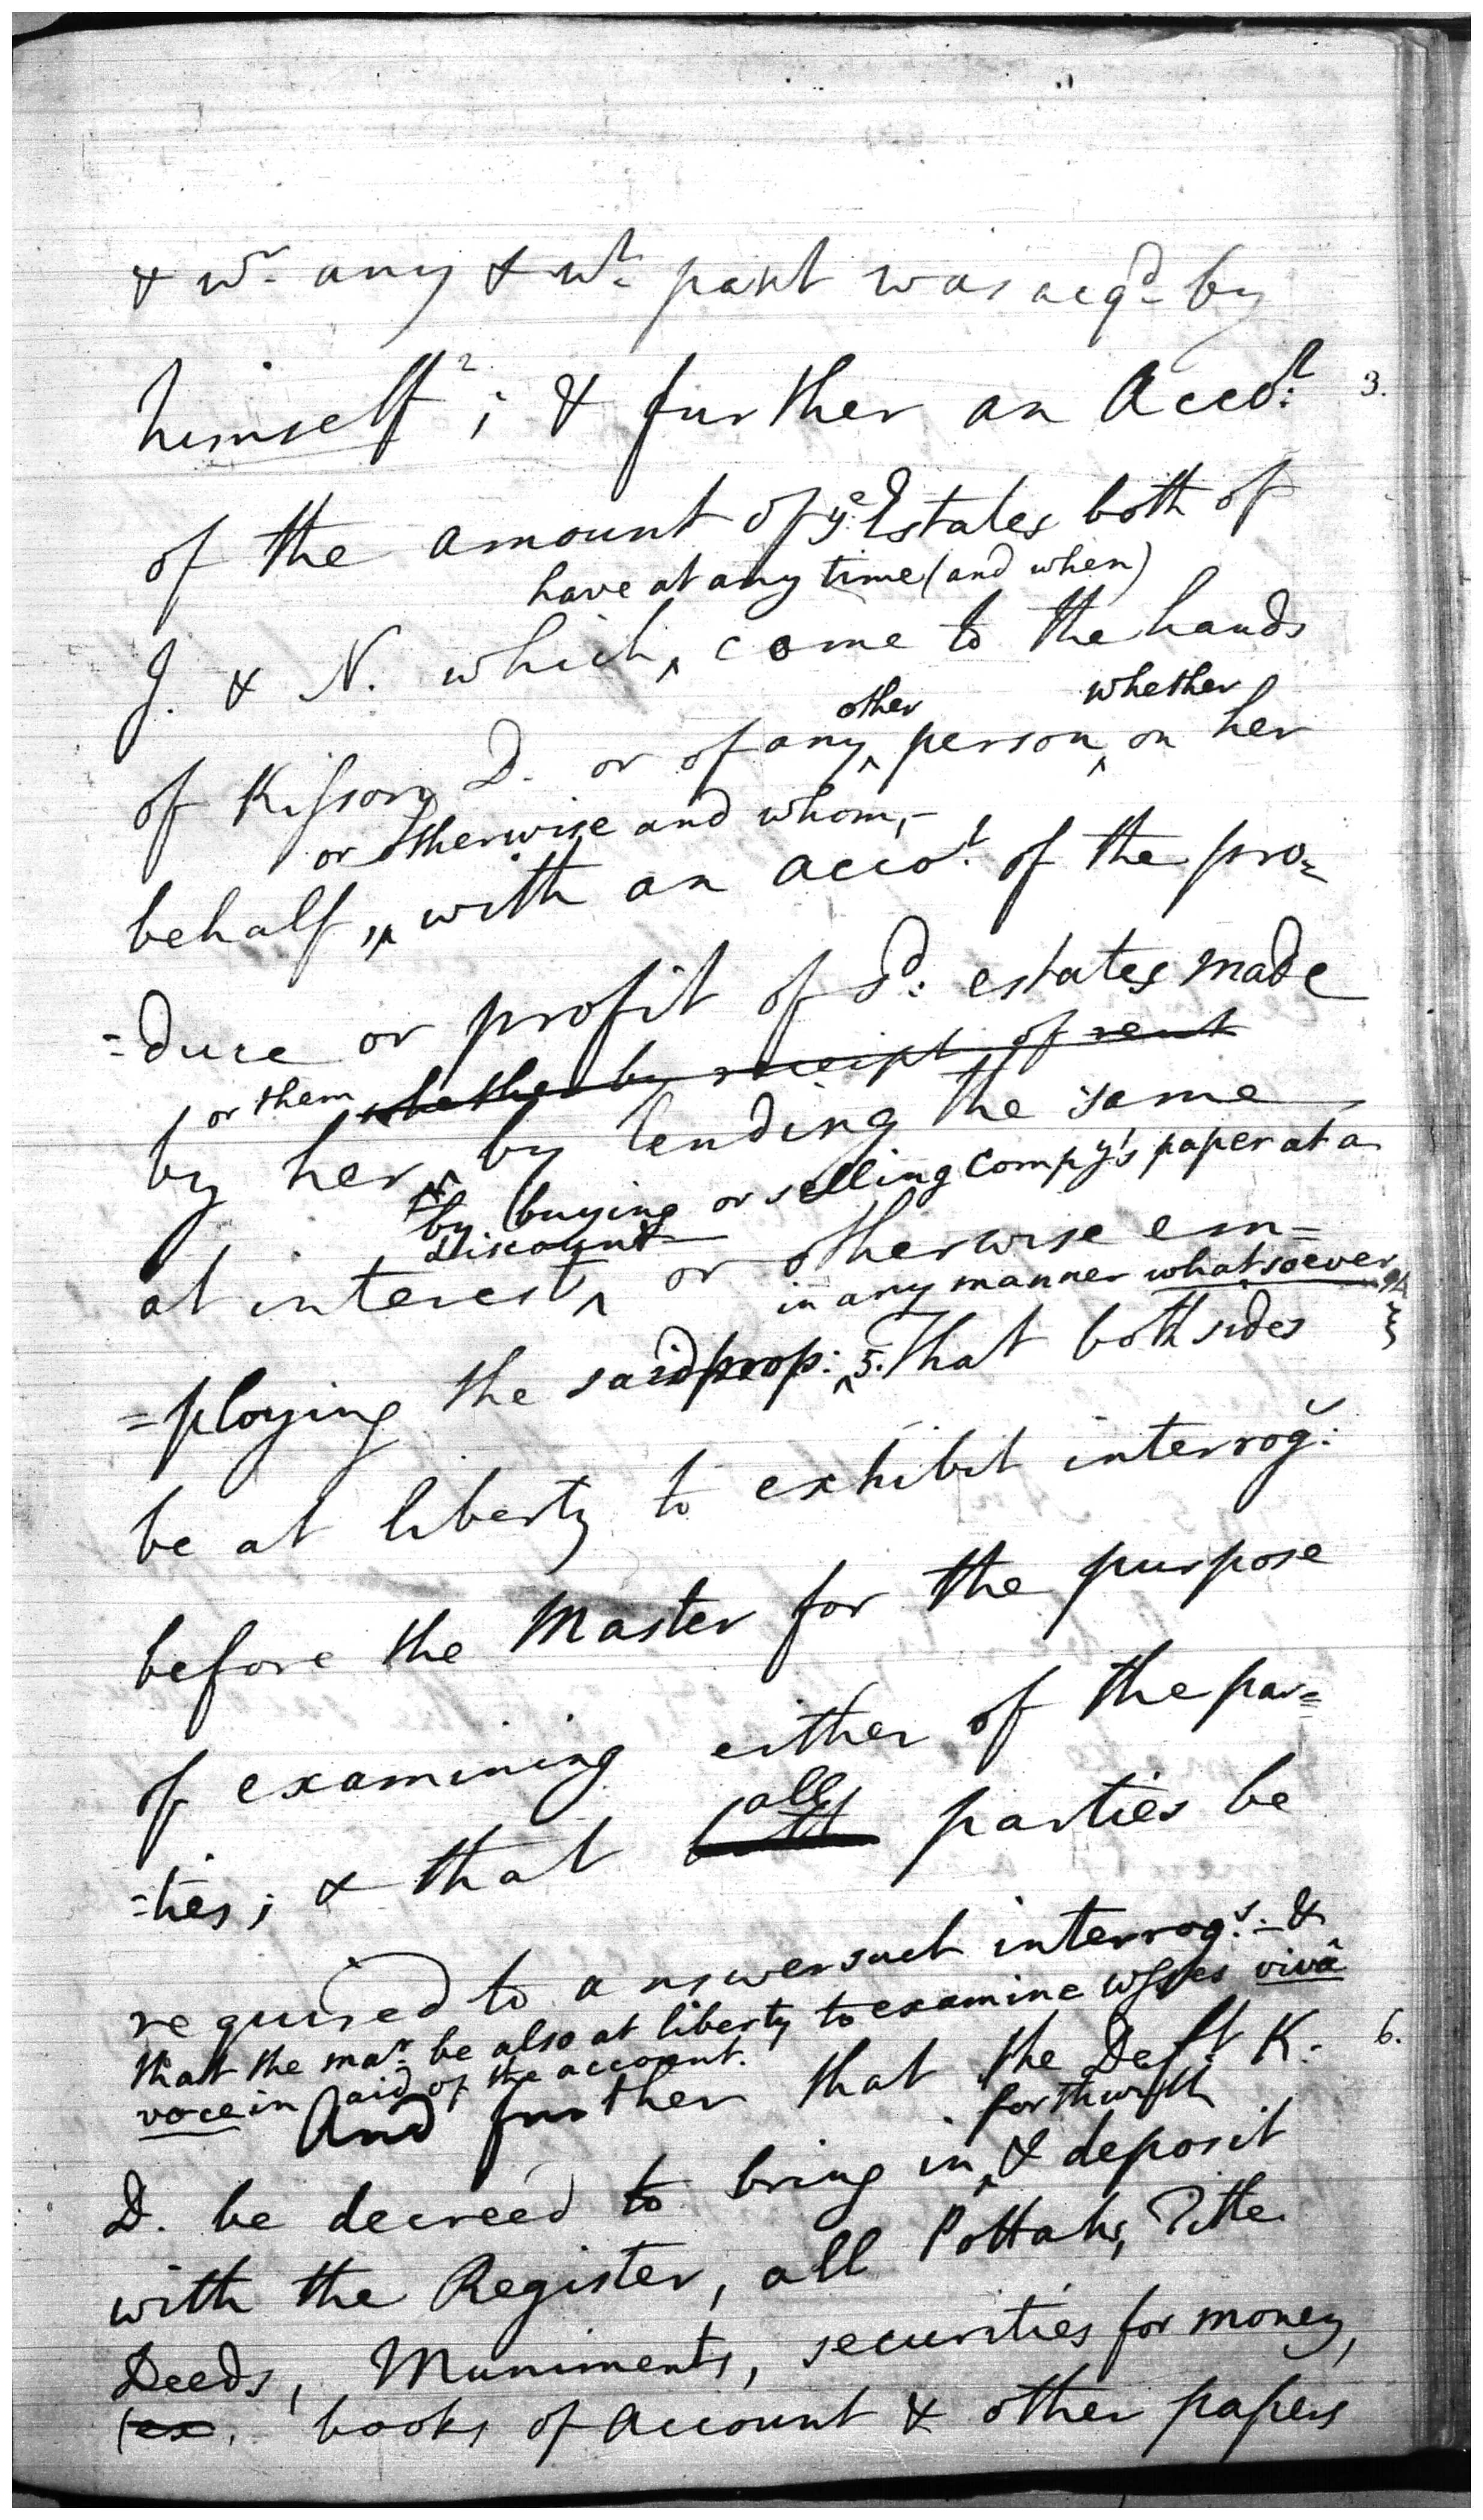 & wr. any & wt. part was acqd. by
himself ; & further an Accot: 3.
of the amount of ye: Estates both of
have at any time (and when)
J. & N. which ‸ come to the hands
other whether
of Kissory D. or of any ‸ person, ‸ on her
or otherwise and whom, -
behalf, ‸ with an accot. of the pro=
=duce or profit of sd: estates made
or them whether by receipt of rent
by her ‸ by lending the same
by buying or selling Compy's paper at a
discount
at interest, ‸ or otherwise em=
in any manner whatsoever
=ploying the said prop: ‸ 5. That both sides
be at liberty to exhibit interrogs:
before the Master for the purpose
of examining either of the par=
all
=ties; & that both parties be
required to answer such interrogs: - &
that the mar. be also at liberty to examine wsses vivâ
voce in aid of the account.
And further that the Deft K. 6.
forthwith
D. be decreed to bring in ‸ & deposit
with the Register, all Pottahs, Title
Deeds, Muniments, securities for money,
(ex. books of account & other papers